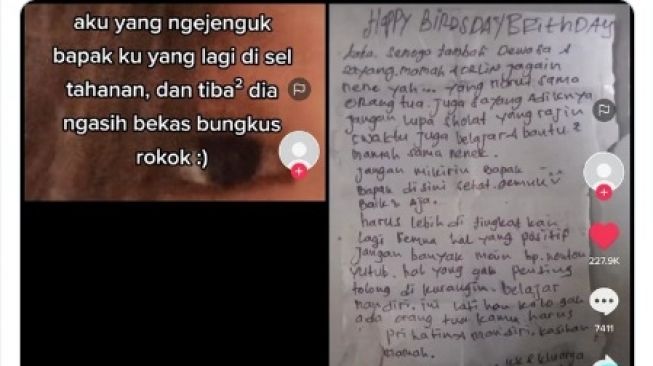 aku yang ngejenguk
bapak ku yang lagi di sel
tahanan, dan tiba² dia
ngasih bekas bungkus
rokok :)
HAPPY BIRDSDAY BRITHDAY
semogo tambah Dewasa &
sayang mamah &
nene yah... yang nurut sama
orang tua. juga sayang Adiknya
jangan lupa sholat yang rajin
juga belajar & bantu2
mamah sama nenek.
jangan mikirin Bapak
Bapak disini sehat gemuk
baik2 Aja.
harus lebih di tingkat kan
lagi semua hal yang positif
jangan banyak main hp. nonton
yutub. hal yang gak penting
tolong di kurangin. belajar
mandiri. ini latihan kalo gak
ada orang tua kamu harus
prihatin mandiri. kasihan
mamah.
227.9K
7411